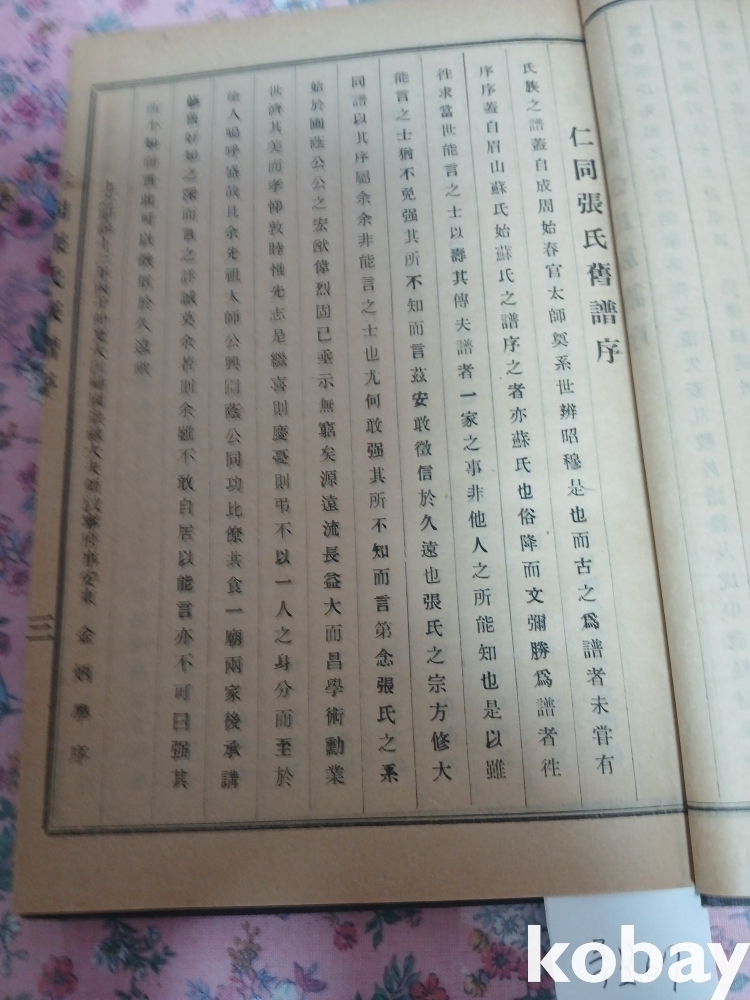 仁同張氏舊譜序
氏族之譜蓋自成周始春官太師奠系世辨昭穆是也而古之爲譜者未甞有
序序蓋自眉山蘇氏始蘇氏之譜序之者亦蘇氏也俗降而文彌勝爲譜者徃
徃求當世能言之士以壽其傳夫譜者一家之事非他人之所能知也是以雖
能言之士猶不免强其所不知而言茲安敢徵信於久遠也張氏之宗方修大
同譜以其序屬余余非能言之士也尤何敢强其所不知而言第念張氏之系
始於 蔭公公之宏猷偉烈固已垂示無窮矣源遠流長益大而昌學術勳業
世濟其美而孝悌敦睦惟先志是繼喜則慶憂則弔不以一人之身分而至於
人嗚呼盛哉且余先祖太師公與 蔭公同功比僚共食一廟兩家後承講
好 之深而 之詳誠莫余若則余雖不敢自居以能言亦不可曰强其
所不知而言 可以徵信於久遠歟
安東 金 序
張氏 譜序
三
kobay